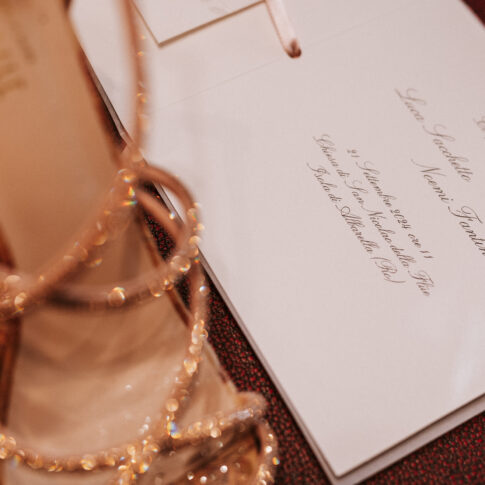 Luca Sacchetto
Noemi
21 Settembre 2024 ore 11
Chiesa di San Nicolao della Flüe
Isola di Albarella (Ro)